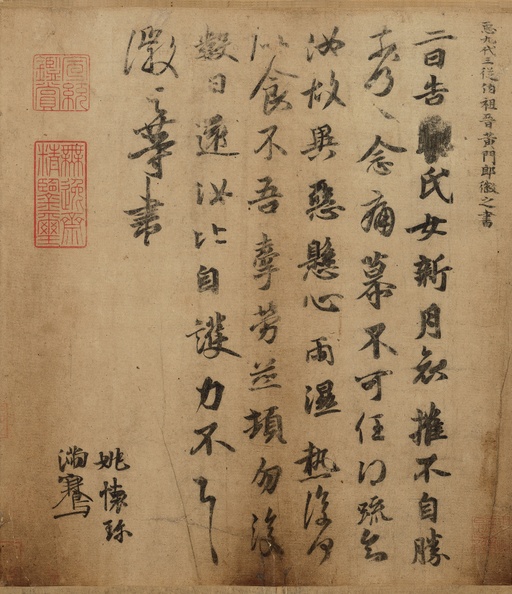 𢘑九代三從伯祖晉黃門郎徽之書
二日告氏女新月哀摧不自勝
奈何〻念痛慕不可任得疏知
汝故異惡懸心雨濕熱復何
似食不吾牽勞並頓勿復
數日還汝比自護力不具
徽之等書
姚懷珍
滿騫
宣統鑑賞
無逸齋精鑑璽